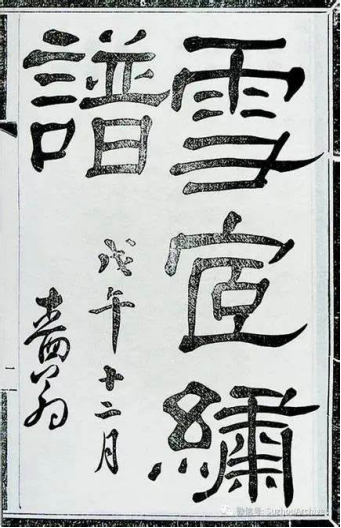 雪宧繡
譜
戊午十二月
嗇翁
微信号: SuzhouArchives